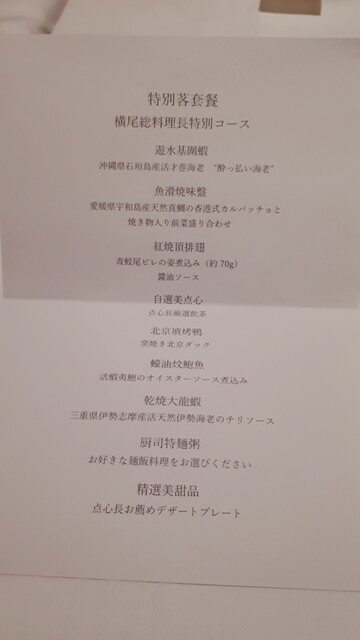 特別茖套餐
横尾総料理長特別コース
遊水基圍蝦
沖縄県石垣島産活才巻海老 “酔っ払い海老”
魚滑燒味盤
愛媛県宇和島産天然真鯛の香港式カルパッチョと
焼き物入り前菜盛り合わせ
紅燒頂排翅
青鮫尾ビレの姿煮込み（約70g）
醤油ソース
自選美点心
点心長厳選飲茶
北京填烤鴨
窯焼き北京ダック
蠔油炆鮑魚
活蝦夷鮑のオイスターソース煮込み
乾燒大龍蝦
三重県伊勢志摩産活天然伊勢海老のチリソース
厨司特麺粥
お好きな麺飯料理をお選びください
精選美甜品
点心長お薦めデザートプレート